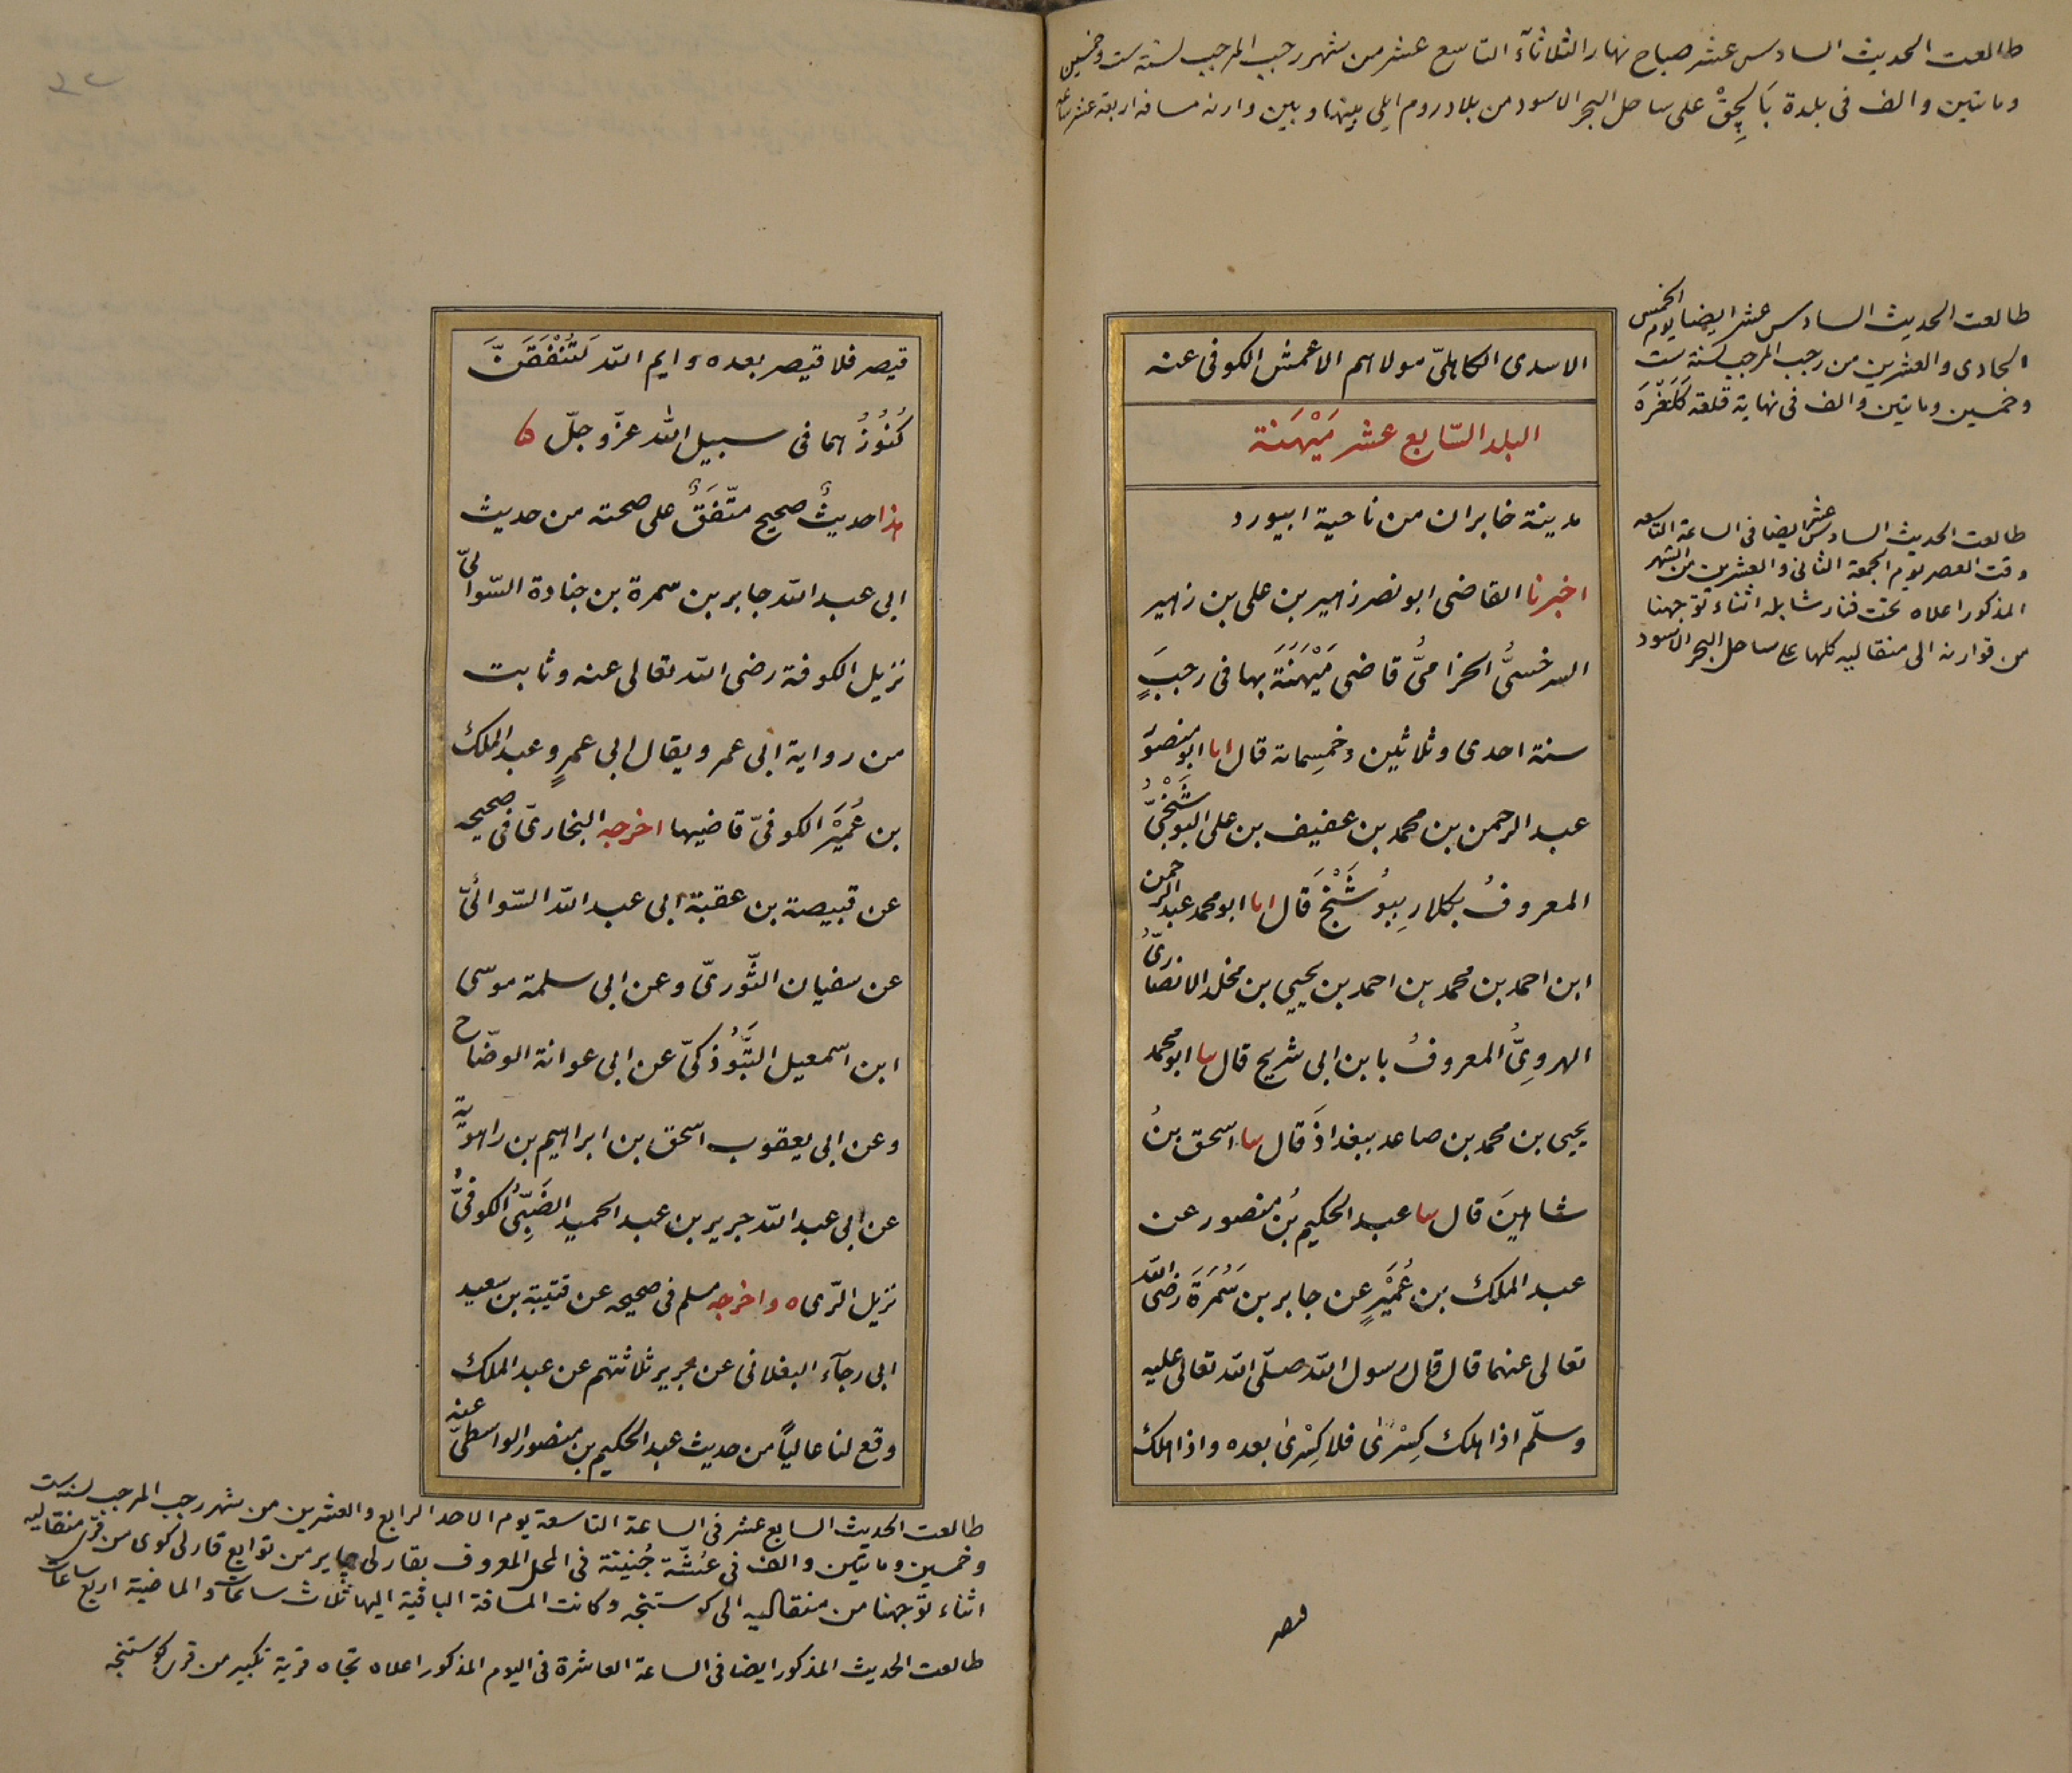 طالعت الحديث السادس عشر صباح نهار الثلاثآء التاسع عشر من شهر رجب المرجب لسنة ست وخمسين
وماىتين والف فى بلدة بَالچِقْ على ساحل البحر الاسود من بلاد روم ايلى بينها وبين وارنه مسافة اربعة عشر ساعة
طالعت الحديث السادس عشر ايضا يوم الخميس
الحادى والعشرين من رجب المرجب لسنة ست
وخمسين وماىتين والف فى نهاية قلعه كَلَغْرَه
طالعت الحديث السادس عشر ايضا فى الساعة التاسعه
وقت العصر يوم الجمعة الثانى والعشرين من الشهر
المذكور اعلاه تحت فنار شابله اثناء توجهنا
من قوارنه الى منقاليه كلها على ساحل البحر الاسود
الاسدى الكاهلىّ مولاهم الاعمش الكوفى عنه
البلد السّابع عشر مَيْهَنة
مدينة خابران من ناحية ابيورد
اخبرنا القاضى ابو نصر زهير بن على بن زهير
السرخسىُّ الخزامىُّ قاضى مَيْهَنَةَ بها فى رجبَ
سنة احدى وثلاثين وخمسِمائة قال انا ابو منصور
عبد الرحمن بن محمد بن عفيف بن على البوشَنْجىُّ
المعروفُ بكلارِ ببُوشَنْجَ قَال انا ابو محمد عبد الرحمن
ابن احمد بن محمد بن احمد بن يحيى بن مخلد الانصارىُّ
الهروىُّ المعروفُ بابن ابى شريح قال ىنا ابو محمد
يحيى بن محمد بن صاعد ببغداذَ قال ىنا اسحق بنُ
شاهينَ قال ىنا عبد الحكيم بنُ منصور عن
عبد الملك بن عُمَيْرٍ عن جابر بن سَمُرَةَ رضى الله
تعالى عنهما قال قال رسول الله صلّى الله تعالى عليه
وسلّم اذا هلك كِسْرٰى فلا كِسْرٰى بعده واذا هلك
قيصر
قيصر فلا قيصر بعده وايم الله لَتُنْفَقَنَّ
كُنُوزُهما فى سبيل الله عزّ وجلّ ه
هذا حديثٌ صحيح متّفَقٌ على صحته من حديث
ابى عبد الله جابر بن سمرة بن جنادة السّوائىّ
نزيل الكوفة رضى الله تعالى عنه وثابت
من رواية ابى عمر ويقال ابى عمرٍو عبد الملك
بن عُمَيْر الكوفىّ قاضيها اخرجه البخارىّ فى صحيحه
عن قبيصة بن عقبة ابى عبد الله السّوائىّ
عن سفيان الثَّورىّ وعن ابى سلمة موسى
ابن اسمعيل التَّبُوذكىّ عن ابى عوانة الوضّاح
وعن ابى يعقوب اسحق بن ابراهيم بن راهويَة
عن ابى عبد الله جرير بن عبد الحميد الضَبِّىُ الكوفىُّ
نزيل الرّى ه واخرجه مسلم فى صحيحه عن قتيبة بن سعيد
ابى رجآء البغلانى عن جرير ثلاثتهم عن عبد الملك
وقع لنا عالياً من حديث عبد الحكيم بن منصور الواسطىّ عنه
طالعت الحديث السابع عشر فى الساعة التاسعة يوم الاحد الرابع والعشرين من شهر رجب المرجب لسنة ست
وخمسين وماىتين والف فى عُشّة جُنينة فى المحل المعروف بقارلى چاير من توابع قارلى كوى من قرى منقاليه
اثناء توجهنا من منقاليه الى كوستنجه وكانت المسافة الباقية اليها ثلاث ساعات والماضية اربع ساعات
طالعت الحديث المذكور ايضا فى الساعة العاشرة فى اليوم المذكور اعلاه تجاه قرية تكبير من قرى كوستنجه